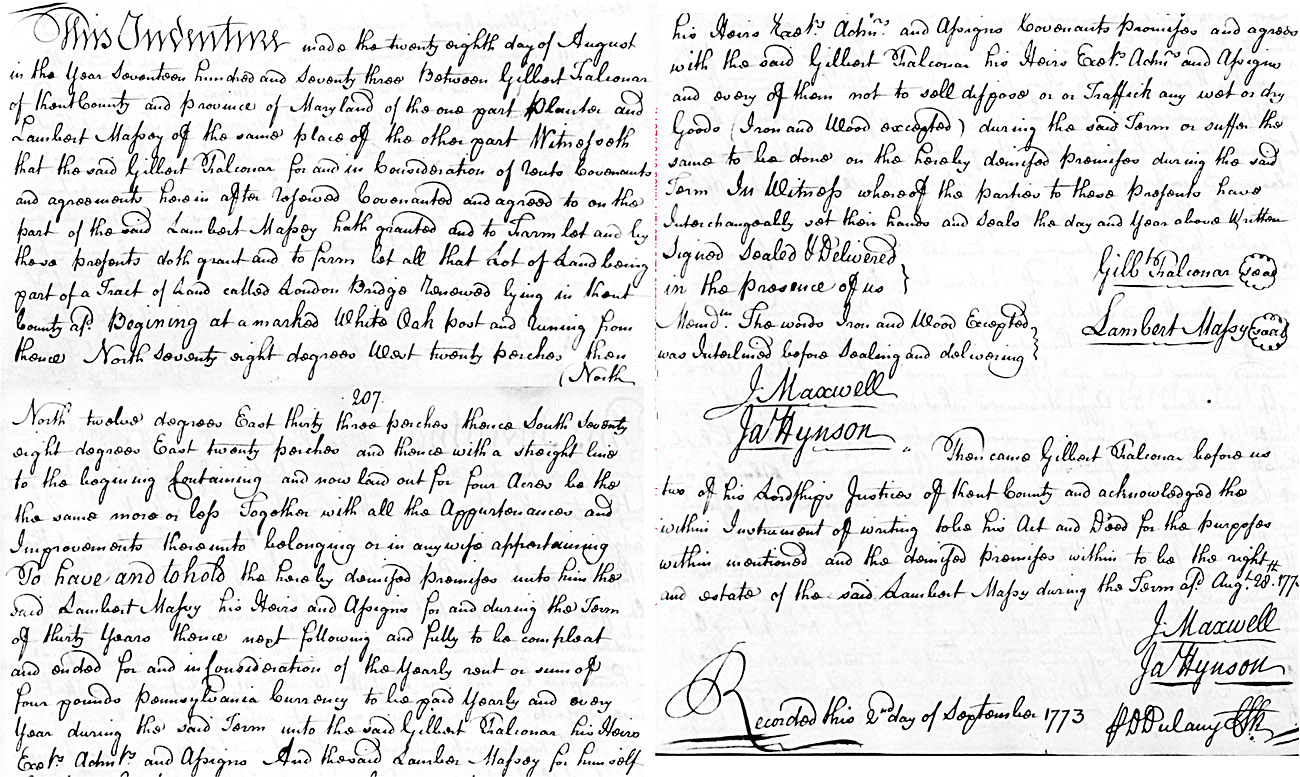 This Indenture made the twenty eighth day of August
in the Year Seventeen hundred and Seventy three Between Gilbert Falconar
of Kent County and Province of Maryland of the one part Planter and
Lambert Massey of the same place of the other part Witnesseth
that the said Gilbert Falconar for and in Consideration of Rents Covenants
and agreements herein after reserved Covenanted and agreed to on the
part of the said Lambert Massey hath granted and to Farm let and by
these presents doth grant and to farm let all that Lot of Land being
part of a Tract of Land called London Bridge Renewed lying in Kent
County afd. Begining at a marked White Oak post and runing from
thence North Seventy eight degrees West twenty perches then
(North
207.
North twelve degrees East thirty three perches thence South Seventy
eight degrees East twenty perches and thence with a streight line
to the begining Containing and now laid out for four Acres be the
the same more or less Together with all the Appurtenances and
Improvements thereunto belonging or in anywise appertaining
To have and to hold the hereby demised premises unto him the
said Lambert Massy his Heirs and Assigns for and during the Term
of thirty Years thence next following and fully to be compleat
and ended for and in Consideration of the Yearly rent or sum of
four pounds Pennsylvania Currency to be paid Yearly and every
Year during the said Term unto the said Gilbert Falconar his Heirs
Exets. Admts. and Assigns And the said Lamber Massey for himself
his Heirs Exets. Admrs. and Assigns Covenants promises and agrees
with the said Gilbert Falconar his Heirs Exets. Admrs and Assigns
and every of them not to sell dispose or or Traffick any wet or dry
Goods (Iron and Wood excepted) during the said Term or suffer the
same to be done on the hereby demised premises during the said
Term In Witness whereof the parties to these presents have
Interchangeably set their hands and Seals the day and Year above Written
Signed Sealed & Delivered
in the presence of us
Gilb Falconar seal
Memdm. The words Iron and Wood Excepted
was Interlined before Sealing and delivering
Lambert Massy seal
J. Maxwell
Jas Hynson
Then came Gilbert Falconar before us
two of his Lordships Justices of Kent County and acknowledged the
within Instrument of writing to be his Act and Deed for the purposes
within mentioned and the demised premises within to be the right
and estate of the said Lambert Massy during the Term afd. Augt. 28th. 177
J. Maxwell
Jas Hynson
Recorded this 2nd day of September 1773
Dulany Clk